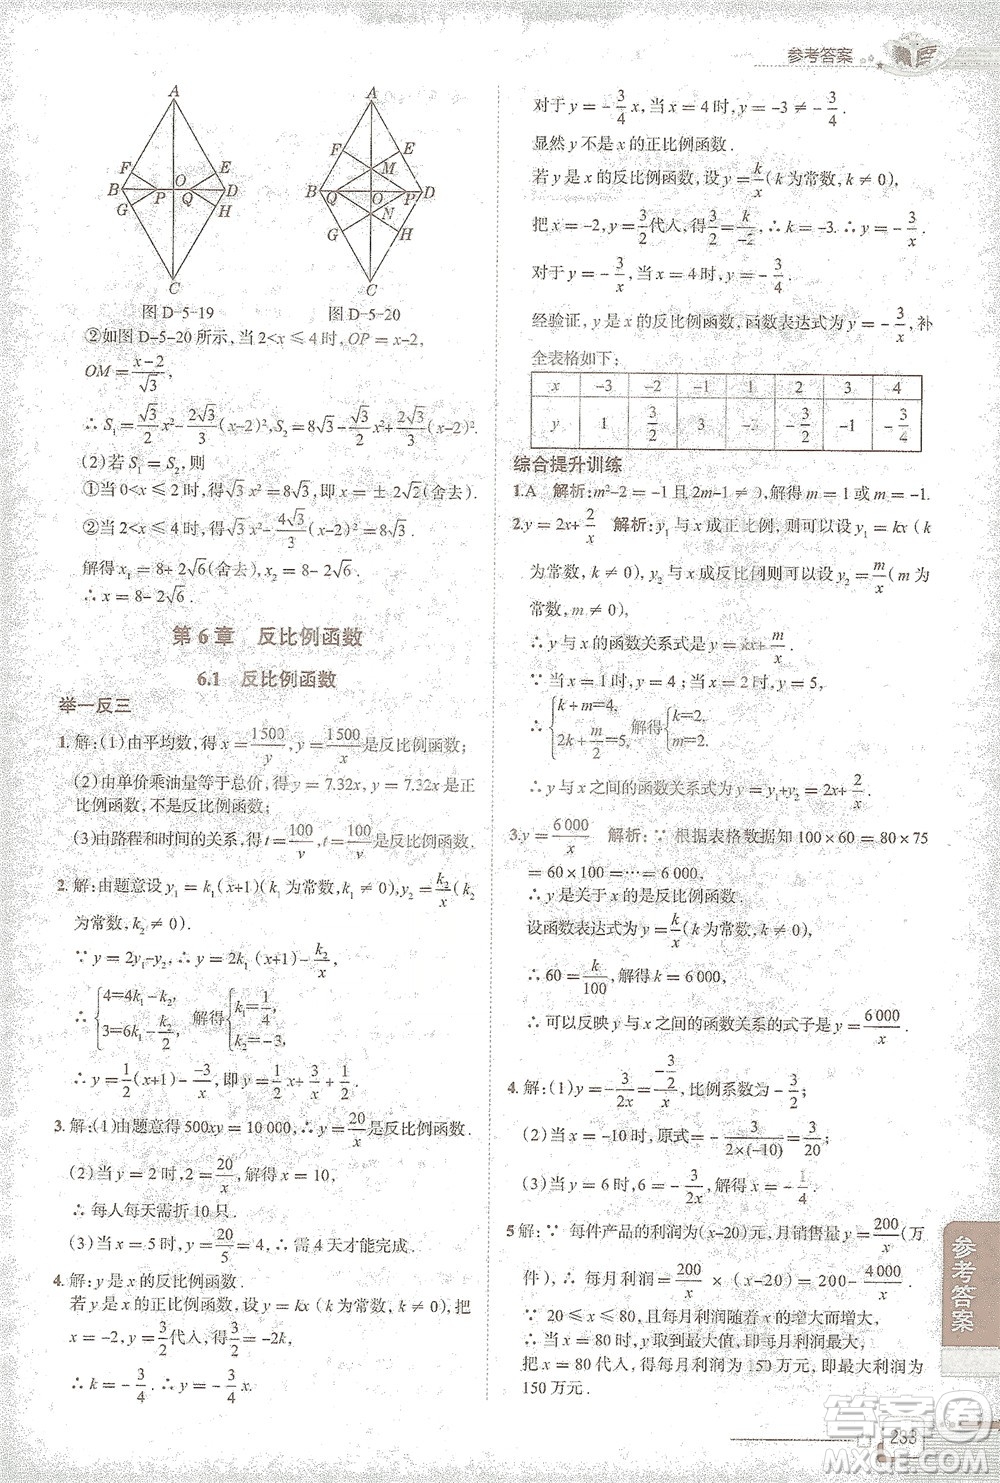 参考答案
A
F E
B O D
P Q
G H
C
图 D-5-19
A
F E
M
B Q O P D
N
G H
C
图 D-5-20
②如图 D-5-20 所示，当 2<x ≤ 4 时，OP = x-2，
OM = (x-2)/√3，
∴ S₁ = (√3/2)x²-(2√3/3)(x-2)²，S₂ = 8√3-(√3/2)x²+(2√3/3)(x-2)².
(2)若 S₁ = S₂，则
①当 0<x ≤ 2 时，√3 x² = 8√3，x = ± 2√2 (舍去).
②当 2<x ≤ 4 时，√3 x²-(4√3/3)(x-2)² = 8√3，
解得 x₁ = 8+ 2√6 (舍去)，x₂ = 8-2√6.
∴ x = 8-2√6.
第 6 章 反比例函数
6.1 反比例函数
举一反三
1. 解：(1)由平均数，得 x = 1500/y，y = 1500/x 是反比例函数；
(2)由单价乘油量等于总价，得 y = 7.32x，y = 7.32x 是正
比例函数，不是反比例函数；
(3)由路程和时间的关系，得 t = 100/v，t = 100/v 是反比例函数.
2. 解：由题意设 y₁ = k₁(x+1)(k₁ 为常数，k₁ ≠ 0)，y₂ = k₂/x (k₂
为常数，k₂ ≠ 0).
∵ y = 2y₁-y₂，∴ y = 2k₁ (x+1)-k₂/x，
∴ {4=4k₁-k₂, 3=6k₁-k₂/2. 解得 {k₁=1/4, k₂=-3.
∴ y = 1/2(x+1)-(-3)/x，即 y = 1/2 x+3/x+1/2.
3. 解：(1)由题意得 500xy = 10 000，∴ y = 20/x 是反比例函数.
(2)当 y = 2 时，2 = 20/x，∴ x = 10，
∴ 每人每天需折 10 只.
(3)当 x = 5 时，y = 20/5 = 4，∴ 需 4 天才能完成.
4. 解：y 是 x 的反比例函数.
若 y 是 x 的正比例函数，设 y = kx(k 为常数，k ≠ 0)，把
x = -2，y = 3/2 代入，得 3/2 = -2k.
∴ k = -3/4.
对于 y = -3/4 x，当 x = 4 时，y = -3/4 × 4 = -3 ≠ -3/4.
显然 y 不是 x 的正比例函数.
若 y 是 x 的反比例函数，设 y = k/x (k 为常数，k ≠ 0)，
把 x = -2，y = 3/2 代入，得 3/2 = k/-2. ∴ k = -3. ∴ y = -3/x.
对于 y = -3/x，当 x = 4 时，y = -3/4.
经验证，y 是 x 的反比例函数，函数表达式为 y = -3/x，补
全表格如下：
x -3 -2 -1 1 2 3 4
y 1 3/2 3 -3 -3/2 -1 -3/4
综合提升训练
1.A 解析：m²-2 = -1 且 2m-1 ≠ 0，解得 m = 1 或 m = -1.
2.y = 2x+ 2/x 解析：y₁ 与 x 成正比例，则可以设 y₁ = kx (k
为常数，k ≠ 0)，y₂ 与 x 成反比例则可以设 y₂ = m/x (m 为
常数，m ≠ 0)，
∴ y 与 x 的函数关系式是 y = kx+ m/x.
∵ 当 x = 1 时，y = 4；当 x = 2 时，y = 5，
∴ {k+m=4, 2k+m/2=5. 解得 {k=2, m=2.
∴ y 与 x 之间的函数关系式为 y = y₁+y₂ = 2x+ 2/x.
3.y = 6 000/x 解析：∵ 根据表格数据知 100 × 60 = 80 × 75
= 60 × 100 = … = 6 000，
∴ y 是关于 x 的是反比例函数.
设函数表达式为 y = k/x (k 为常数，k ≠ 0)，
∴ 60 = k/100，解得 k = 6 000，
∴ 可以反映 y 与 x 之间的函数关系的式子是 y = 6 000/x.
4. 解：(1) y = -3/2x = (-3/2)/x，比例系数为 -3/2；
(2)当 x = -10 时，原式 = -3/(2×(-10)) = 3/20；
(3)当 y = 6 时，6 = -3/2x，解得 x = -1/4.
5 解：∵ 每件产品的利润为 (x-20)元，月销售量 y = 200/x (万
件)，∴ 每月利润 = 200/x × (x-20) = 200- 4 000/x.
∵ 20 ≤ x ≤ 80，且每月利润随着 x 的增大而增大，
∴ 当 x = 80 时，每月利润取到最大值，即每月利润最大，
把 x = 80 代入，得每月利润为 150 万元，即最大利润为
150 万元.
参考答案
233
答案圈
MXQE.COM